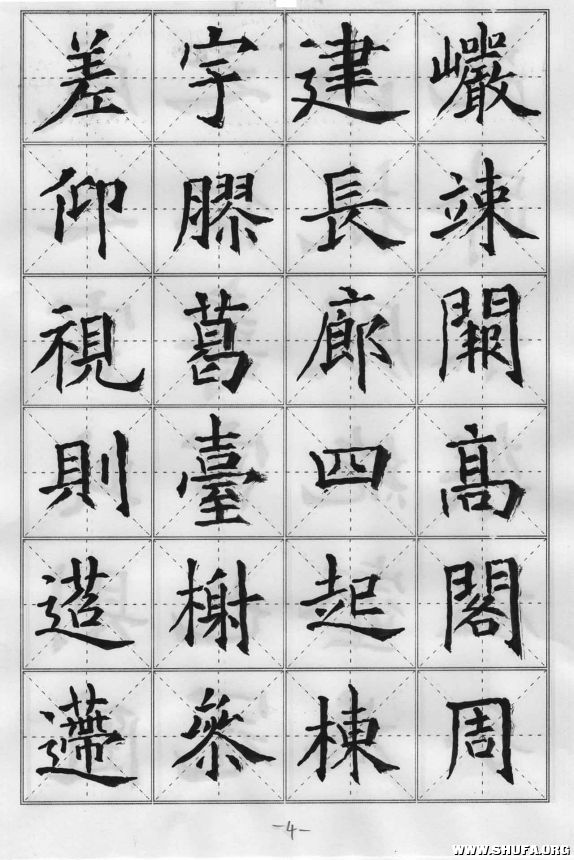 巗竦闕髙閣周
建長廊四起棟
宇膠葛臺榭參
差仰視則迢遰
-4-
WWW.SHUFA.ORG